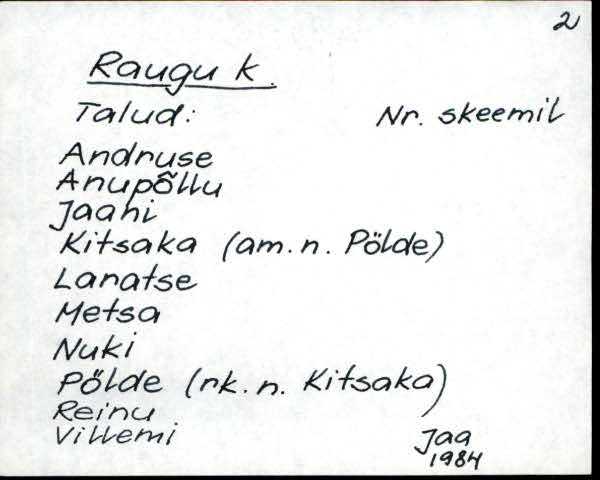 2
Raugu k.
Talud: Nr. skeemil
Andruse
Anupõllu
Jaani
Kitsaka (am. n. Põlde)
Lanatse
Metsa
Nuki
Põlde (rk. n. Kitsaka)
Reinu
Villemi
Jaa
1984